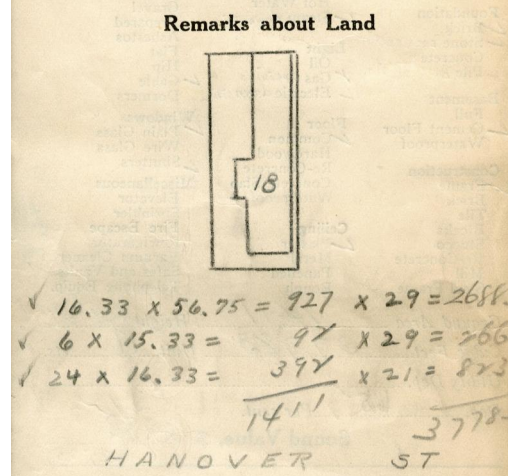 Remarks about Land
18
✓ 16.33 x 56.75 = 927 x 29 = 2688.
✓ 6 x 15.33 = 92 x 29 = 266
✓ 24 x 16.33 = 392 x 21 = 823
1411 3778-
HANOVER ST